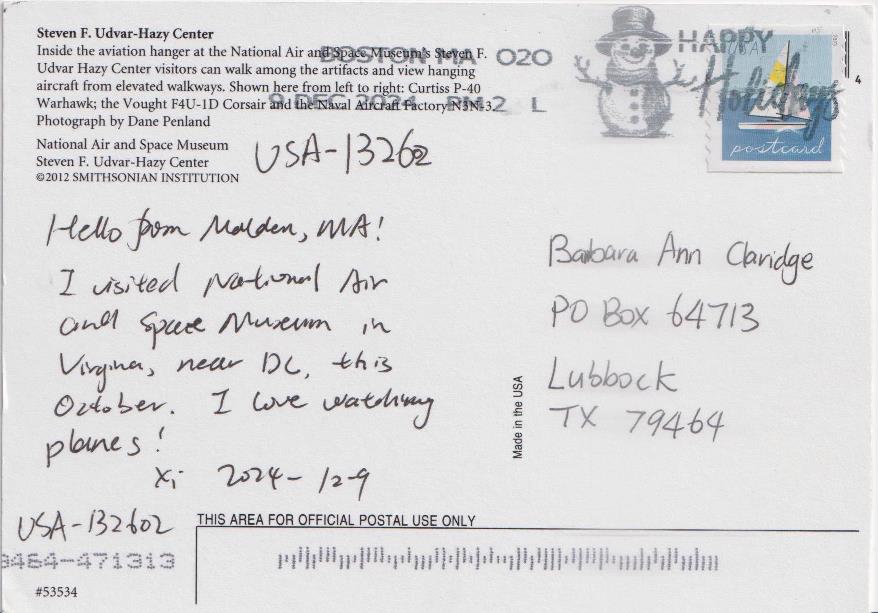 Steven F. Udvar-Hazy Center
Inside the aviation hanger at the National Air and Space Museum's Steven F.
Udvar Hazy Center visitors can walk among the artifacts and view hanging
aircraft from elevated walkways. Shown here from left to right: Curtiss P-40
Warhawk; the Vought F4U-1D Corsair and the Naval Aircraft Factory N3N-3.
Photograph by Dane Penland
National Air and Space Museum
Steven F. Udvar-Hazy Center
©2012 SMITHSONIAN INSTITUTION
BOSTON MA 020
9 DEC 2024 PM 2 L
HAPPY
Holidays
USA
postcard
4
USA-132602
Hello from Malden, MA!
I visited National Air
and Space Museum in
Virginia, near DC, this
October. I love watching
planes!
Xi 2024-12-9
USA-132602
Barbara Ann Claridge
PO Box 64713
Lubbock
TX 79464
Made in the USA
THIS AREA FOR OFFICIAL POSTAL USE ONLY
9464-471313
#53534